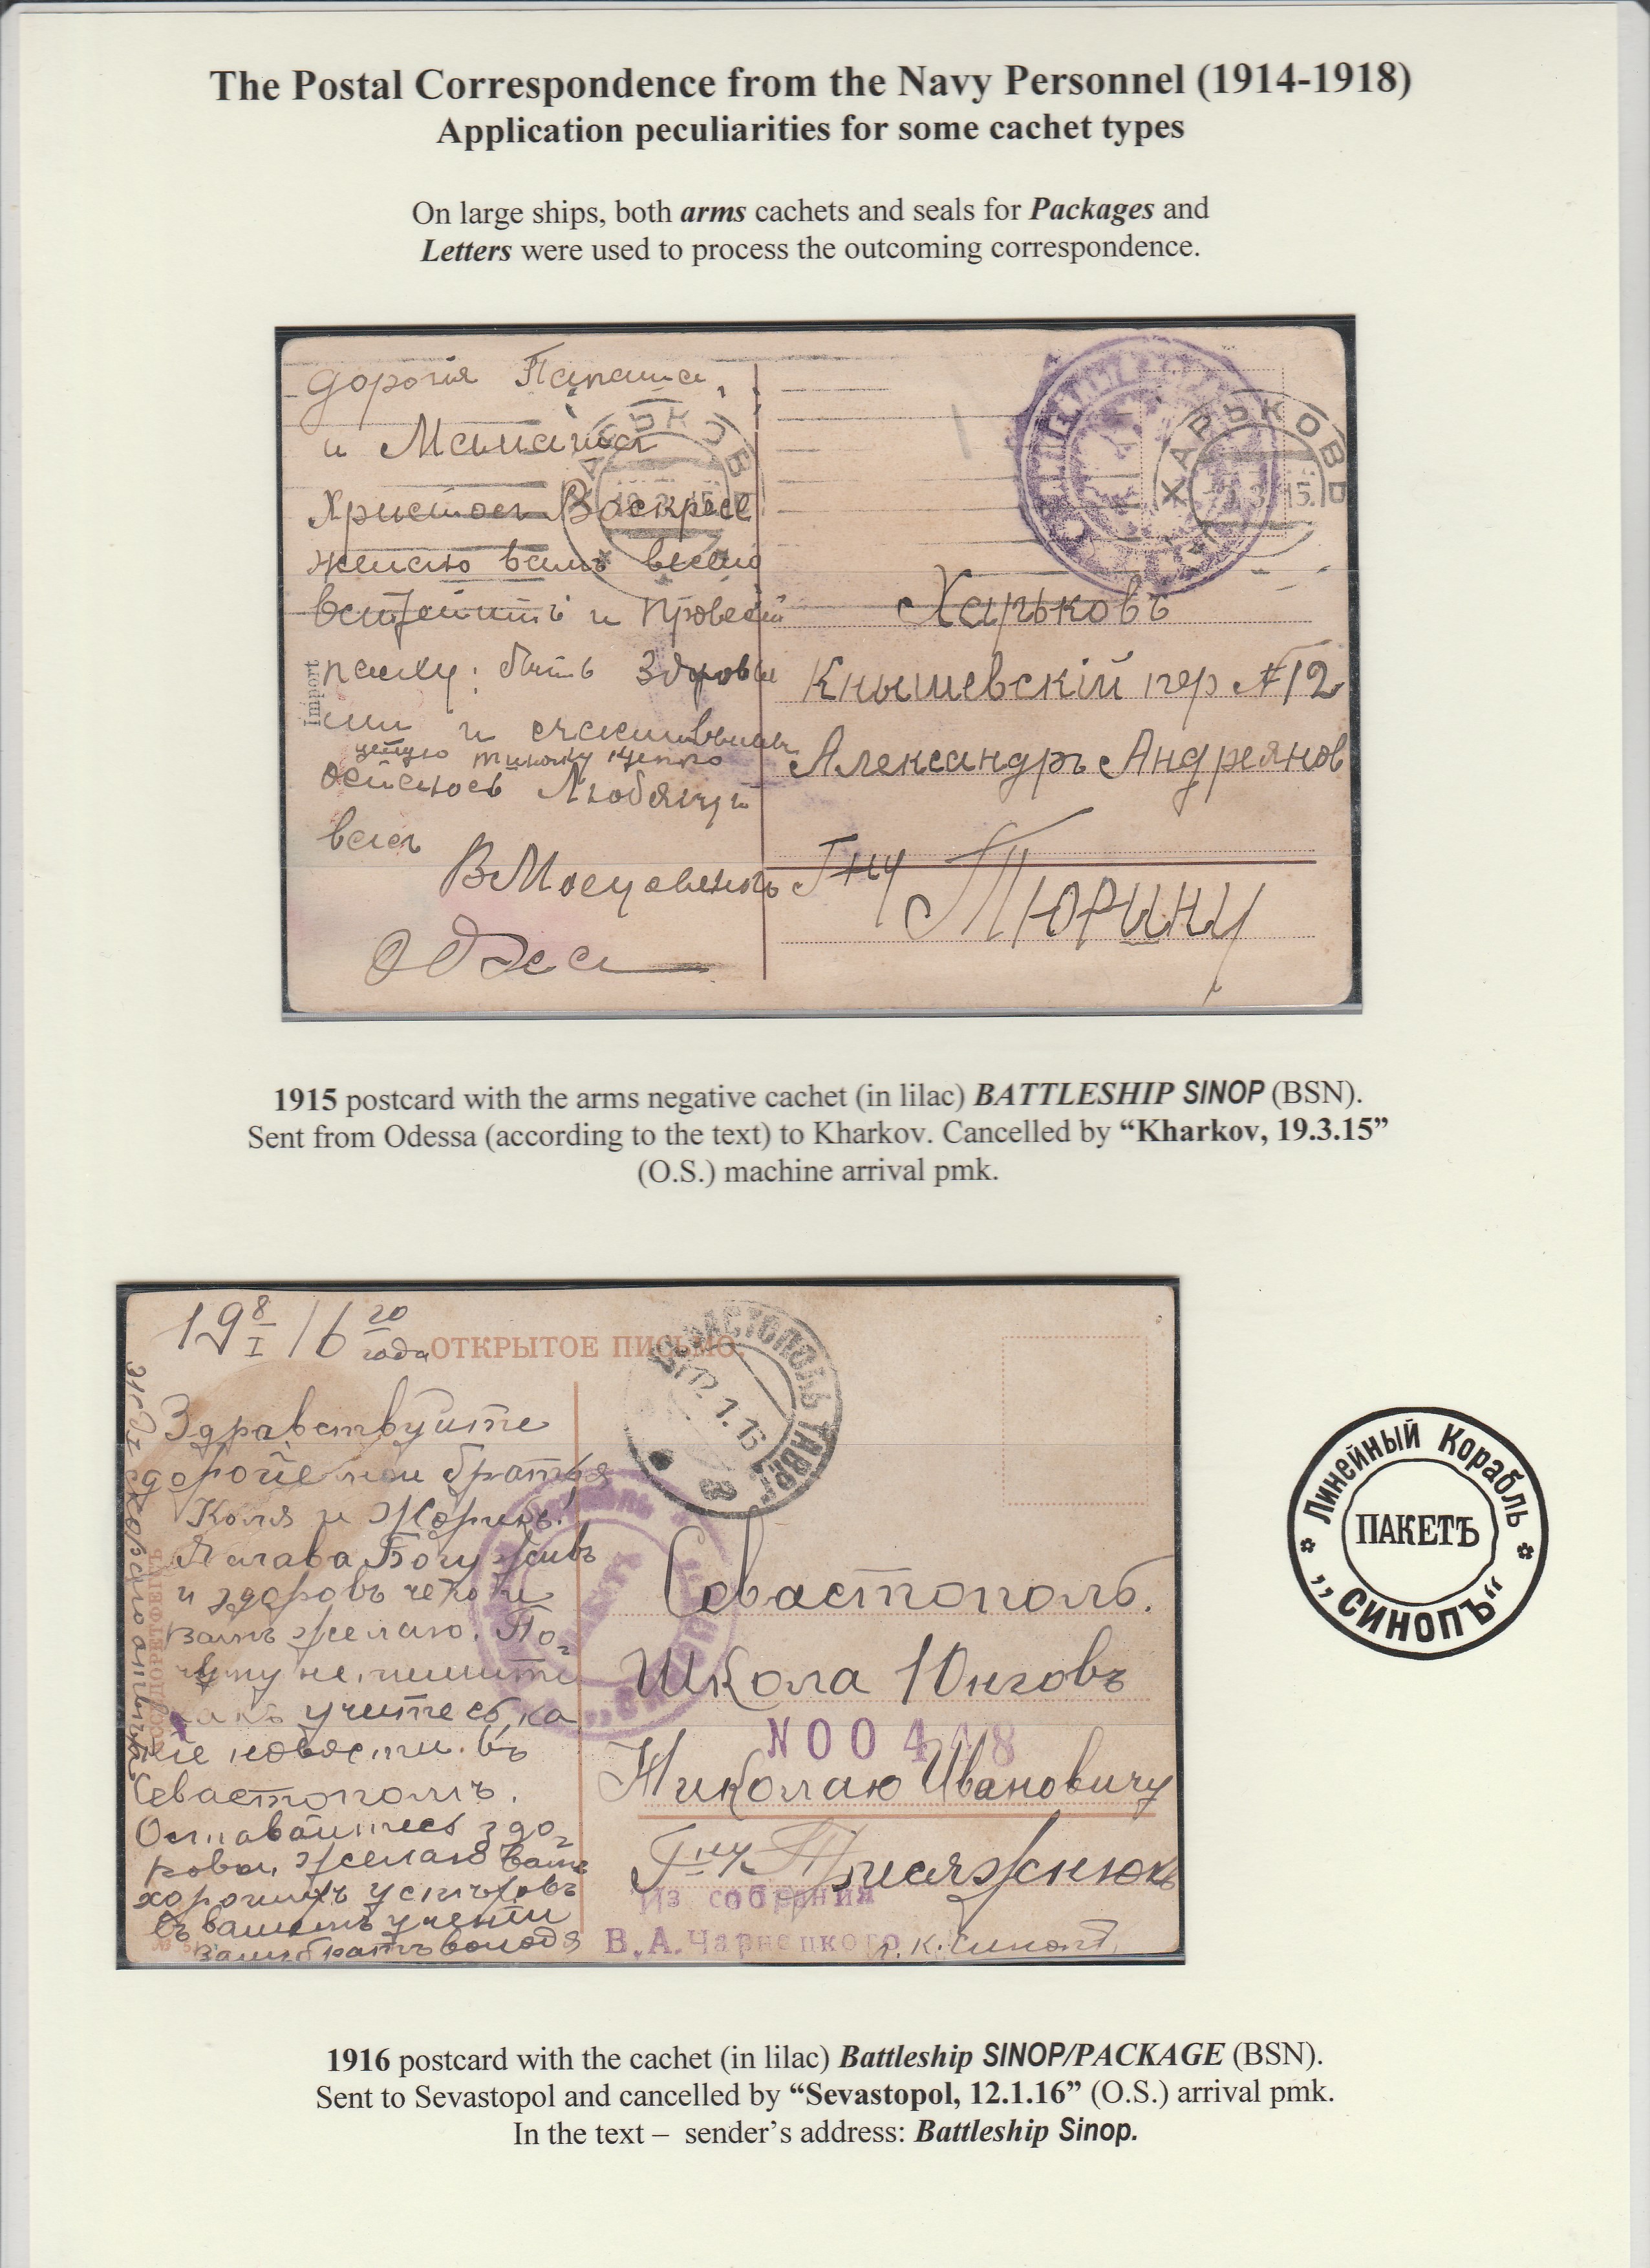 The Postal Correspondence from the Navy Personnel (1914-1918)
Application peculiarities for some cachet types
On large ships, both arms cachets and seals for Packages and
Letters were used to process the outcoming correspondence.
Дорогiя Папаша,
и Мамаша
Христосъ Воскресе
желаю вамъ весело
встретить и провести
пасху: быть здоровы
ми и счастливыми
целую тысячу
остаюсь Любящий
васъ
Одеса
Import
ХАРЬКОВЪ
ХАРЬКОВЪ
Харьковъ
Кнышевскiй пер №12
Александръ Андреянов
Гну Тюрину
1915 postcard with the arms negative cachet (in lilac) BATTLESHIP SINOP (BSN).
Sent from Odessa (according to the text) to Kharkov. Cancelled by “Kharkov, 19.3.15”
(O.S.) machine arrival pmk.
19 8/I 16 го года
ОТКРЫТОЕ ПИСЬМО.
Здравствуйте
дорогiе мои братья
Коля и Жоржъ!
Я слава Богу живъ
и здоровъ чего и
вамъ желаю. По-
чему не пишите
какъ учитесь, ка
кiе новости въ
Севастополѣ.
Оставайтесь здо-
ровы, желаю вамъ
хорошихъ успѣховъ
въ вашемъ учении
вашъ братъ володя
жду скораго отвѣта
СЕВАСТОПОЛЬ ТАВР.
12.1.16
Севастополь.
Школа Юнговъ
N00448
Николаю Ивановичу
Гну Присяжнюкъ
Из собрания
В.А.Чарнецкого
Л.К. Синопъ
Линейный Корабль
ПАКЕТЪ
„СИНОПЪ“
1916 postcard with the cachet (in lilac) Battleship SINOP/PACKAGE (BSN).
Sent to Sevastopol and cancelled by “Sevastopol, 12.1.16” (O.S.) arrival pmk.
In the text – sender’s address: Battleship Sinop.